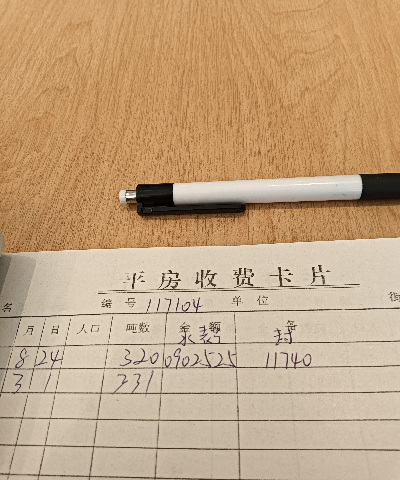 平房收费卡片
名 编号 117104 单位 街
月 日 人口 吨数 金额 备
水表 封
8 24 320 0902525 11740
3 1 331